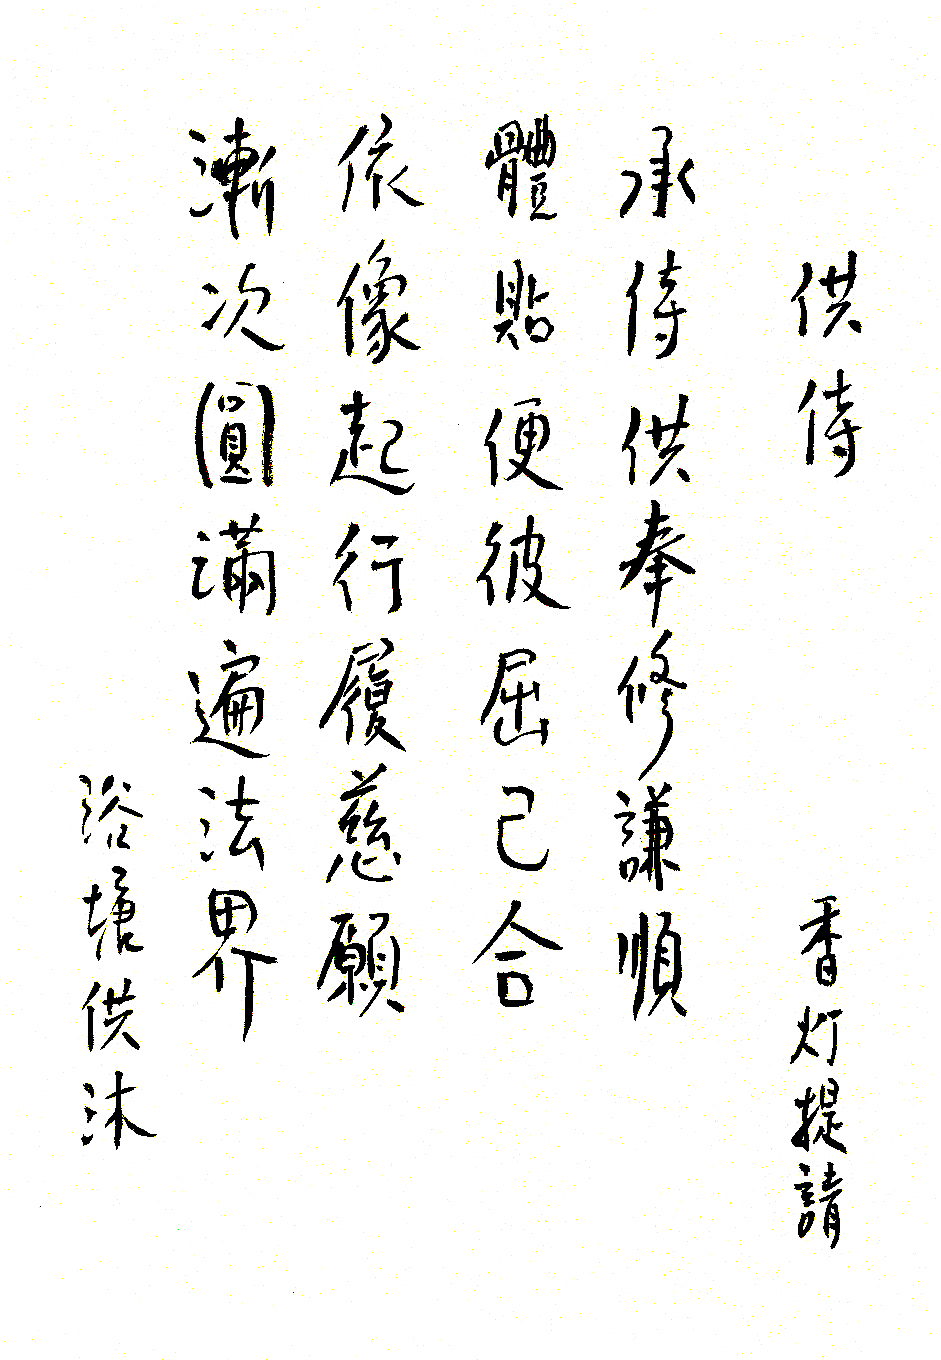 供侍
香灯提請
承侍供奉修謙順
體貼便彼屈己合
依像起行履慈願
漸次圓滿遍法界
浴塘供沐